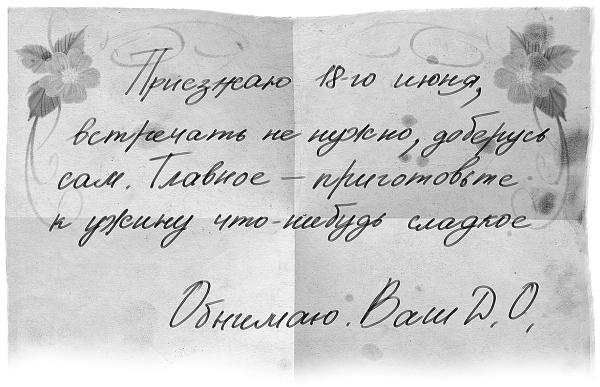 Приезжаю 18-го июня,
встречать не нужно, доберусь
сам. Главное — приготовьте
к ужину что-нибудь сладкое
Обнимаю. Ваш Д. О.